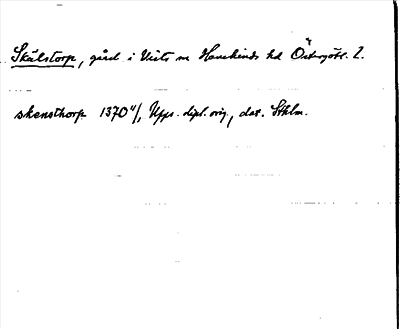 Skälstorp, gård i Vists sn Hanekinds hd Östergötl. l.
skensthorp 1370 4/1 Upps. dipl. orig., dat. Sthlm.